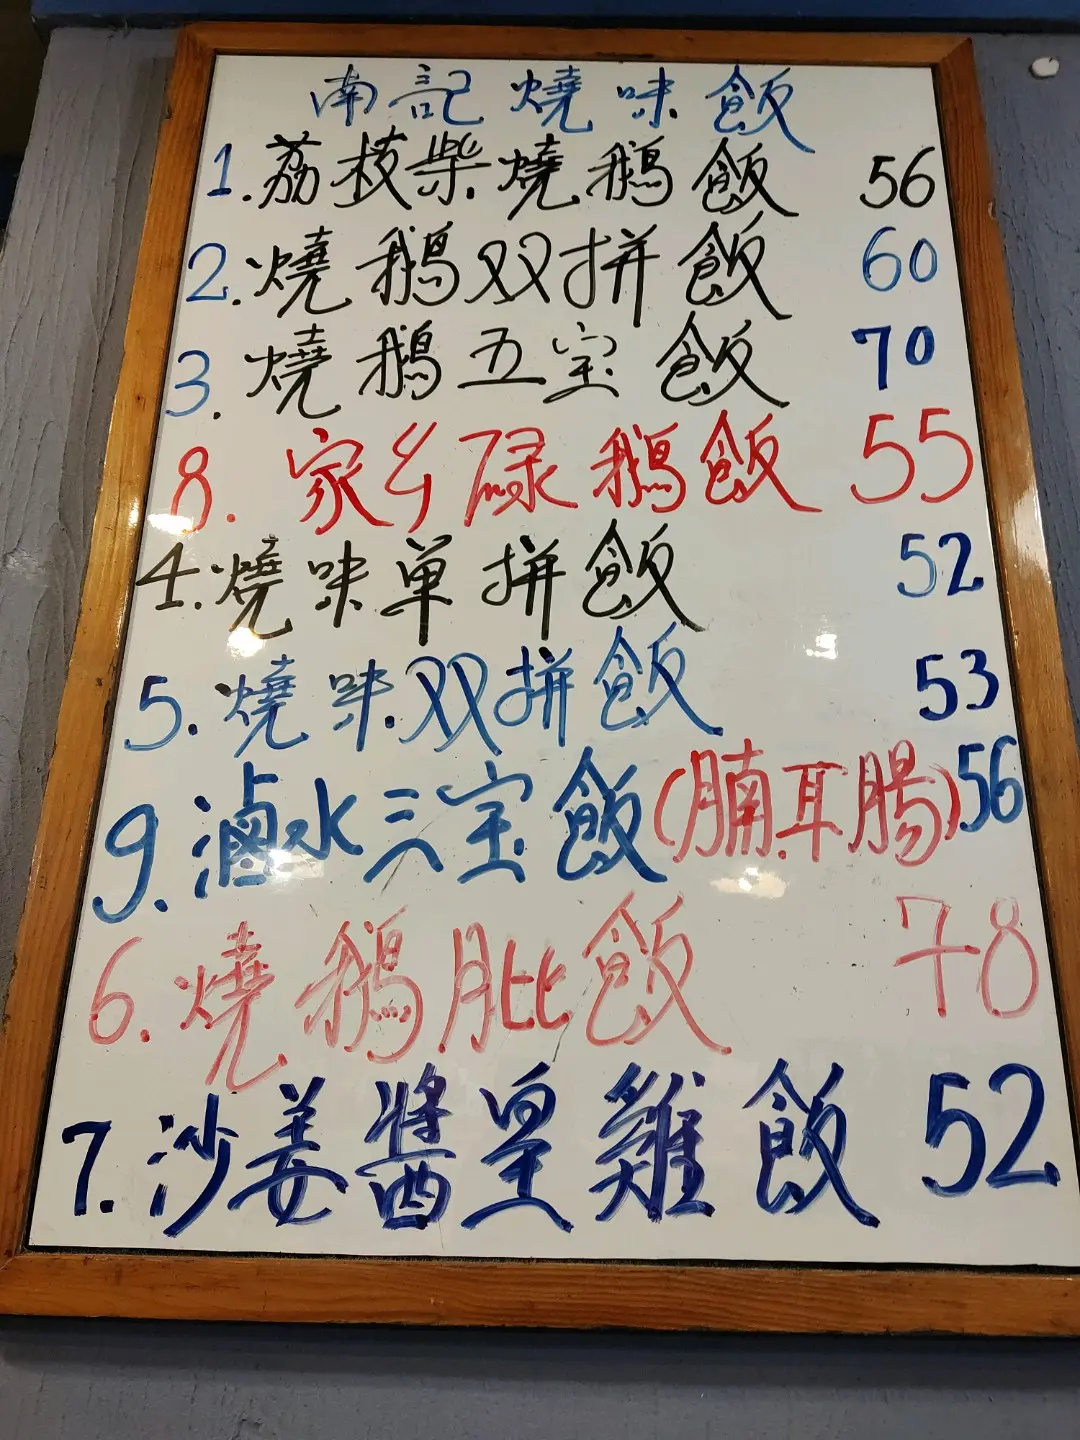 南記燒味飯
1.荔枝柴燒鵝飯 56
2.燒鵝双拼飯 60
3.燒鵝五宝飯 70
8.家乡碌鵝飯 55
4.燒味單拼飯 52
5.燒味双拼飯 53
9.滷水三宝飯(腩耳腸)56
6.燒鵝肶飯 78
7.沙姜醬皇雞飯 52